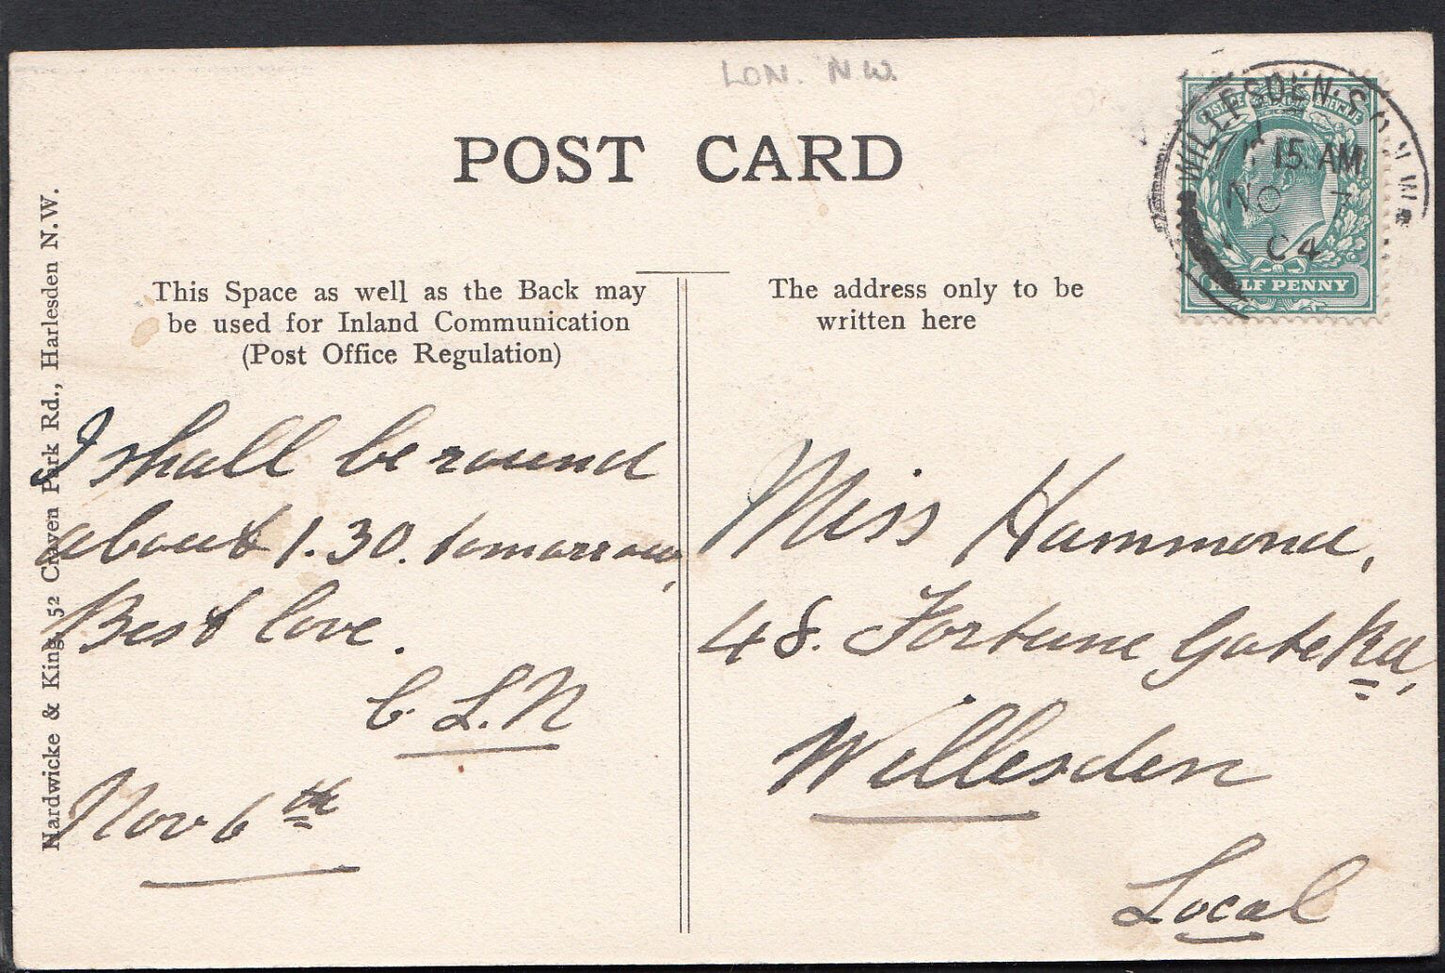 LON. N.W.
POST CARD
WILLESDEN. S.O. N.W.
15 AM
NO 7
04
HALF PENNY
Hardwicke & King, 52 Craven Park Rd., Harlesden N.W.
This Space as well as the Back may
be used for Inland Communication
(Post Office Regulation)
The address only to be
written here
I shall be round
about 1.30. tomorrow,
Best love.
C. L. N
Nov 6th
Miss Hammond,
48. Fortune Gate Rd,
Willesden
Local